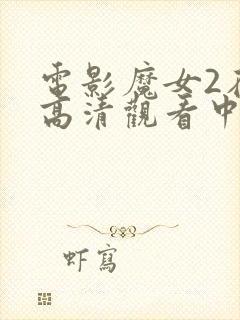 電影魔女2
高清觀看中
虾寫